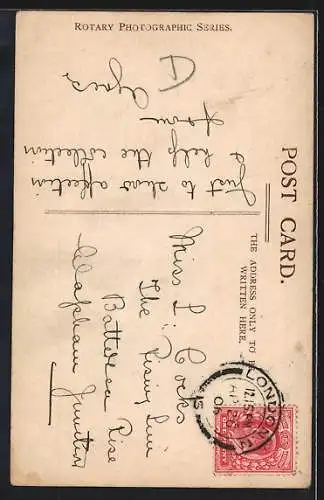 ROTARY PHOTOGRAPHIC SERIES.
POST CARD.
THE ADDRESS ONLY TO B
WRITTEN HERE.
Just to show affection
& help the collection
from
Agnes
Miss L. Cocks
The Rising Sun
Battersea Rise
Clapham Junction
LONDON. N.
12.15 PM